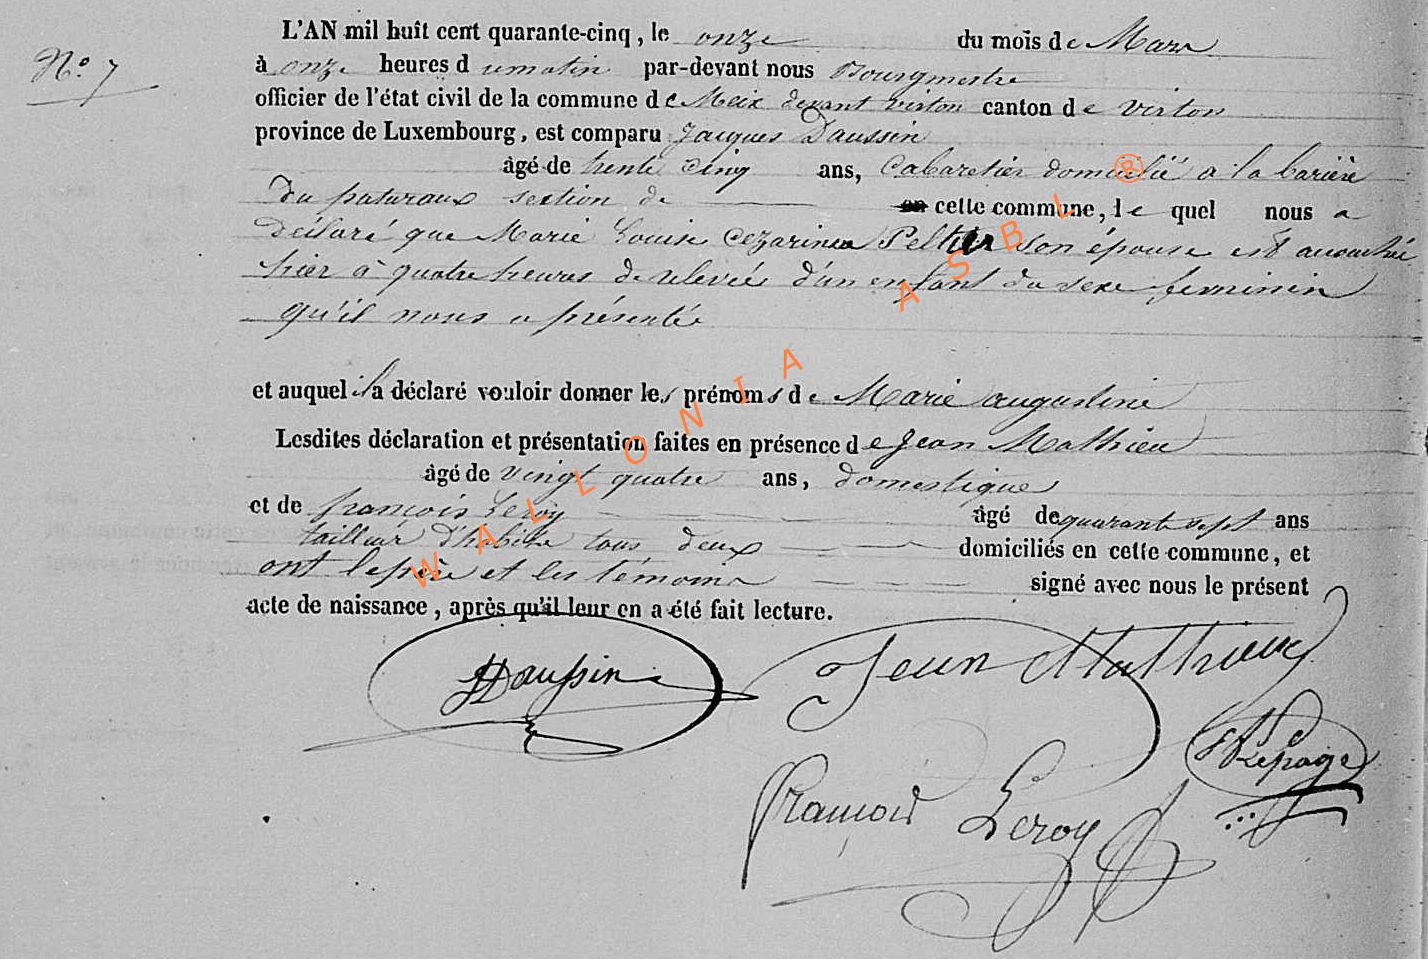 N.o 7
L'AN mil huit cent quarante-cinq, le onze du mois de Mars
à onze heures du matin par-devant nous Bourgmestre
officier de l'état civil de la commune de Meix devant virton canton de virton
province de Luxembourg, est comparu Jacques Daussin
âgé de trente cinq ans, Cabaretier domicilié à la barière
du paturaux section de cette commune, le quel nous a
déclaré que Marie Louise Cezarinne Peltier son épouse est accouchée
hier à quatre heures de relevée d'un enfant du sexe feminin
qu'il nous a présentée
et auquel il a déclaré vouloir donner les prénoms de Marie augustine
Lesdites déclaration et présentation faites en présence de Jean Mathieu
âgé de vingt quatre ans, domestique
et de françois Leroy âgé de quarante sept ans
tailleur d'habits tous deux domiciliés en cette commune, et
ont le père et les témoins signé avec nous le présent
acte de naissance, après qu'il leur en a été fait lecture.
Daussin
Jean Mathieu
Lepage
François Leroy
WALLONIA ASBL ®